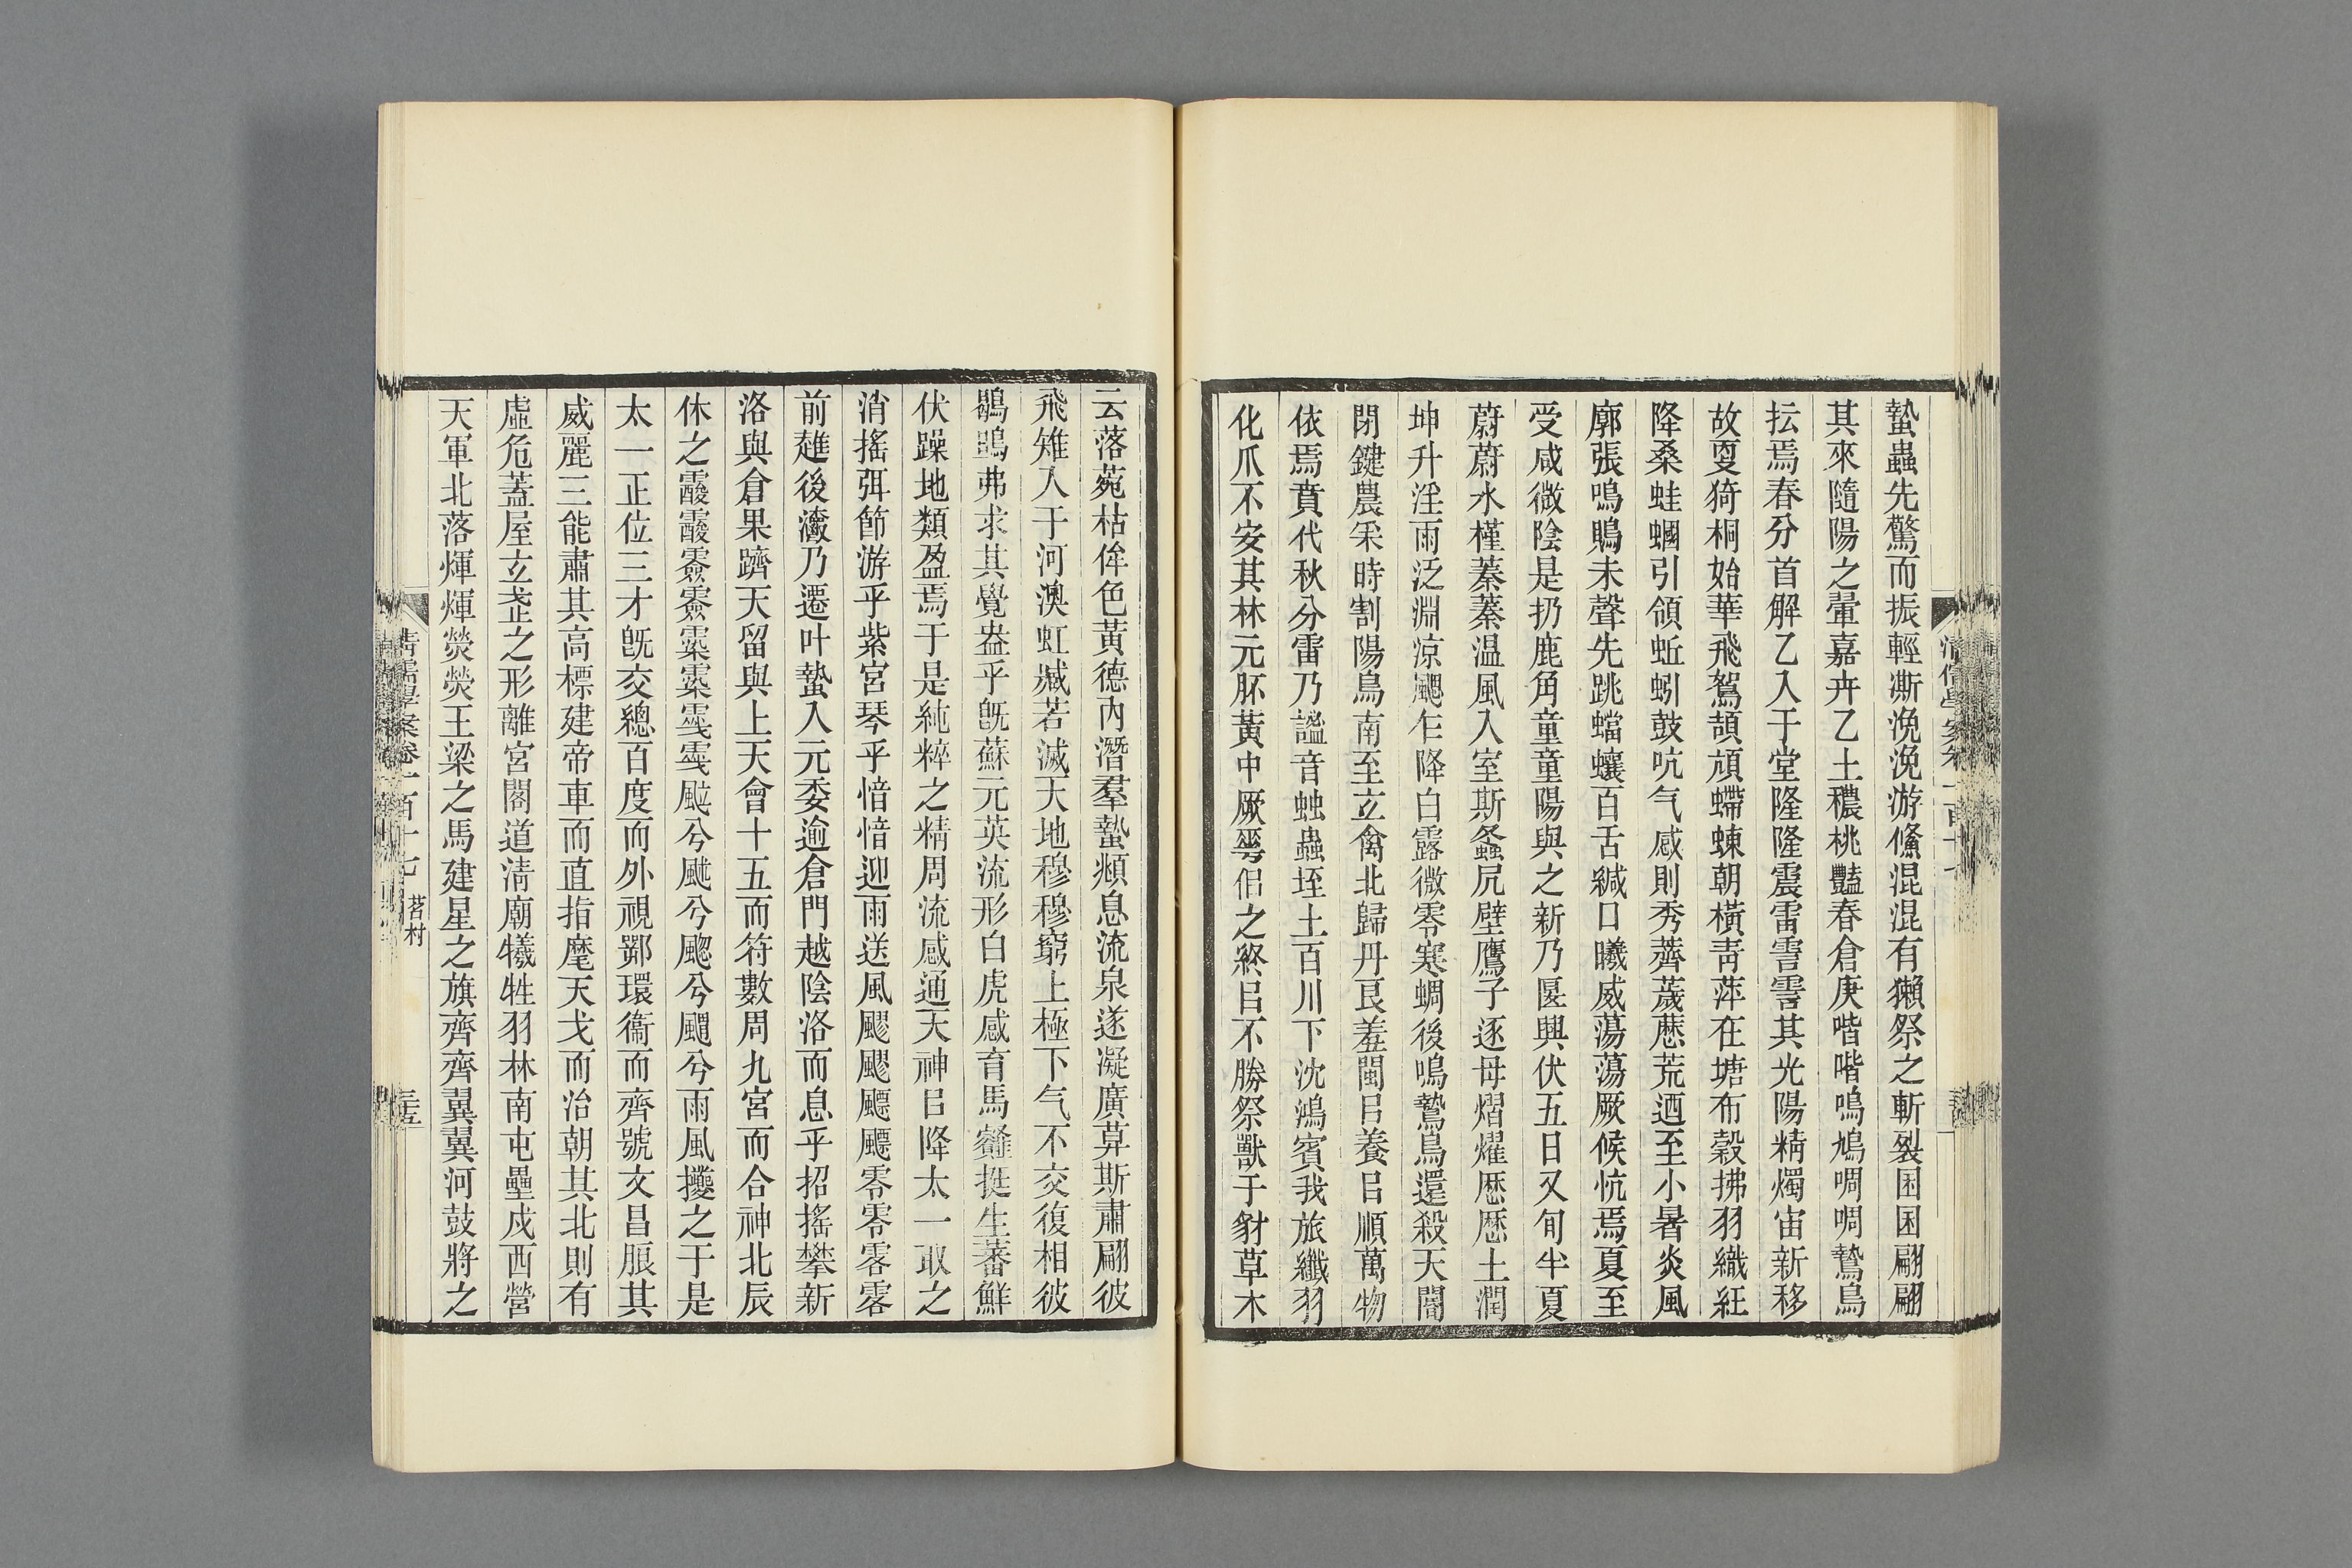 蟄蟲先驚而振輕澌浼浼游鯈混混有獺祭之斬裂囷囷翩翩
其來隨陽之翬嘉卉乙土穠桃豔春倉庚喈喈鳴鳩啁啁鷙鳥
抎焉春分首解乙入于堂隆隆震雷霅霅其光陽精燭宙新移
故夏猗桐始華飛鴽頡頏蝃蝀朝橫靑萍在塘布穀拂羽織紝
降桑蛙蟈引領蚯蚓鼓吭气感則秀薺薉蘼荒迺至小暑炎風
廓張鳴鵙未聲先跳蟷蠰百舌緘口曦威蕩蕩厥候忼焉夏至
受咸微陰是扔鹿角童童陽與之新乃匽與伏五日又旬半夏
蔚蔚水槿蓁蓁温風入室斯螽尻壁鷹子逐母熠燿厯厯土潤
坤升淫雨泛淵涼颸乍降白露微零寒蜩後鳴鷙鳥還殺天闇
閉鍵農釆時割陽鳥南至玄禽北歸丹艮羞閩㠯養㠯順萬物
依焉賁代秋分雷乃謐音蚰蟲垤土百川下沈鴻賓我旅纖羽
化爪不安其林元肧黃中厥蕚侣之終㠯不勝祭獸于豺草木
云落菀枯侔色黃德內潛羣蟄頫息流泉遂凝廣莫斯肅翩彼
飛雉入于河澳虹臧若滅天地穆穆窮上極下气不交復相彼
鶡鴠弗求其覺盎乎旣蘇元英流形白虎感育馬䪥挺生蕃鮮
伏躁地類盈焉于是純粹之精周流感通天神㠯降太一取之
消搖弭節游乎紫宮琴乎愔愔迎雨送風飂飂飃飃零零霗霗
前趡後瀿乃遷叶蟄入元委逾倉門越陰洛而息乎招搖攀新
洛與倉果躋天留與上天會十五而符數周九宮而合神北辰
休之霰霰霒霒霂霂霋霋颭兮颩兮颸兮颶兮雨風攫之于是
太一正位三才旣交總百度而外視鄧環衞而齊號文昌脹其
威麗三能肅其高標建帝車而直指麾天戈而治朝其北則有
虛危蓋屋玄武之形離宮閣道淸廟犧牲羽林南屯壘戍西營
天軍北落煇煇熒熒王梁之馬建星之旗齊齊翼翼河鼓將之
淸儒學案卷一百十七 茗村 三五